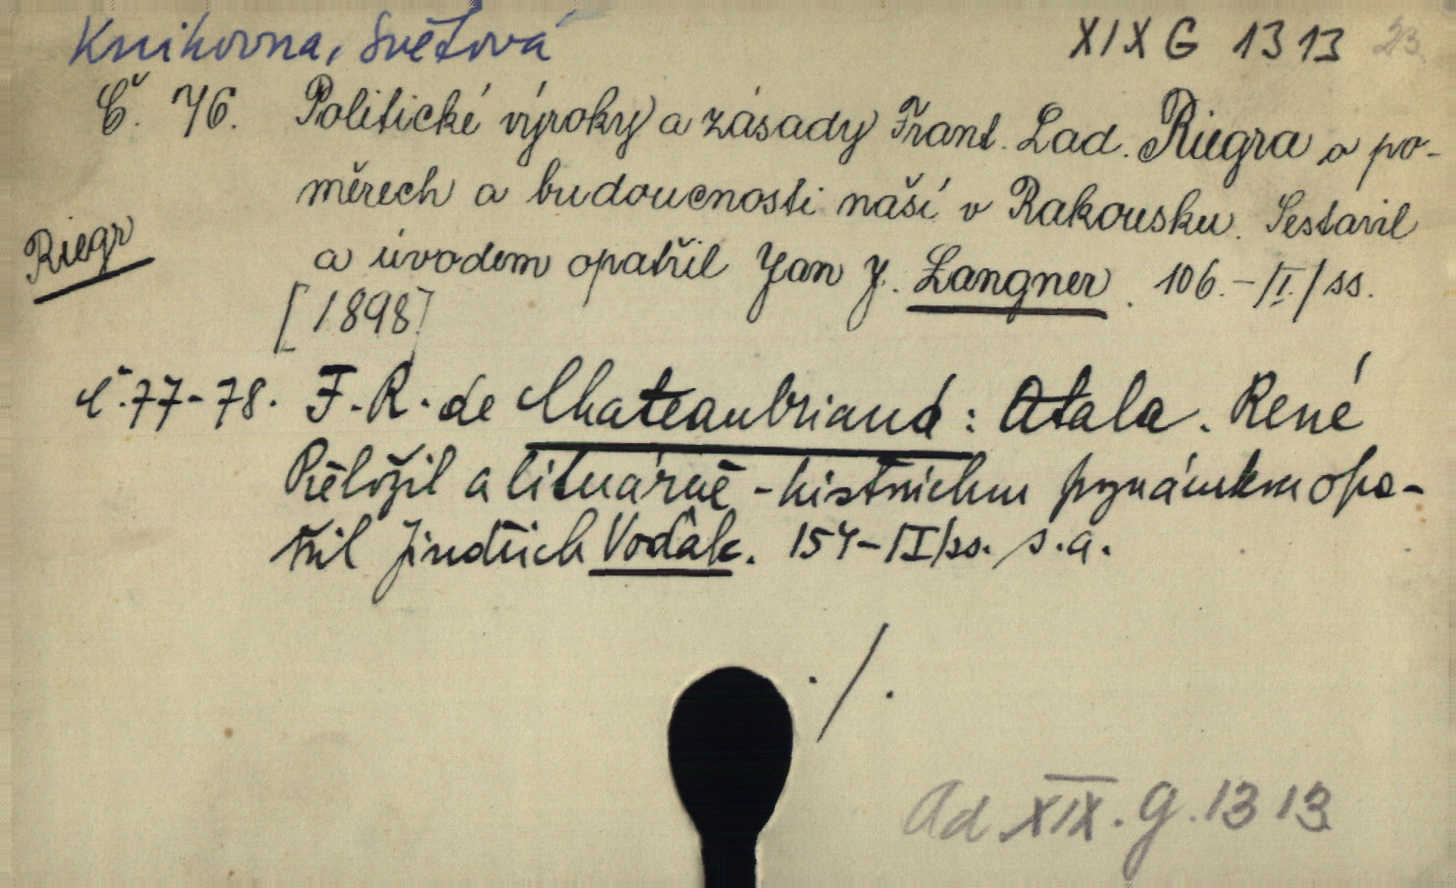 Knihovna, Světová XIX G 1313 23.
Č. 76. Politické výroky a zásady Frant. Lad. Riegra o po-
měrech a budoucnosti naší v Rakousku. Sestavil
Riegr
a úvodem opatřil Jan J. Langner. 106.-/I./ss.
[1898]
č. 77-78. F. R. de Chateaubriand: Atala. René
Přeložil a literárně-histrickm pznámkm opa-
třil Jindřich Vodák. 154-II/ss. s.a.
./.
Ad XIX. g. 1313